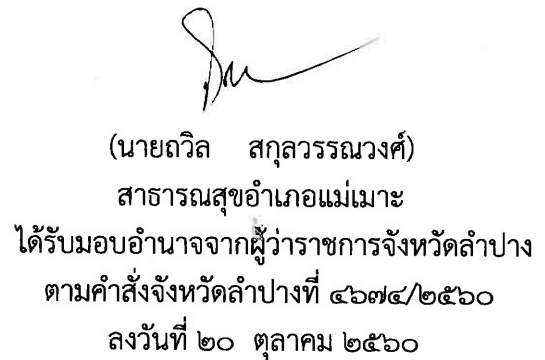 (นายถวิล สกุลวรรณวงศ์)
สาธารณสุขอำเภอแม่เมาะ
ได้รับมอบอำนาจจากผู้ว่าราชการจังหวัดลำปาง
ตามคำสั่งจังหวัดลำปางที่ ๔๖๗๔/๒๕๖๐
ลงวันที่ ๒๐ ตุลาคม ๒๕๖๐